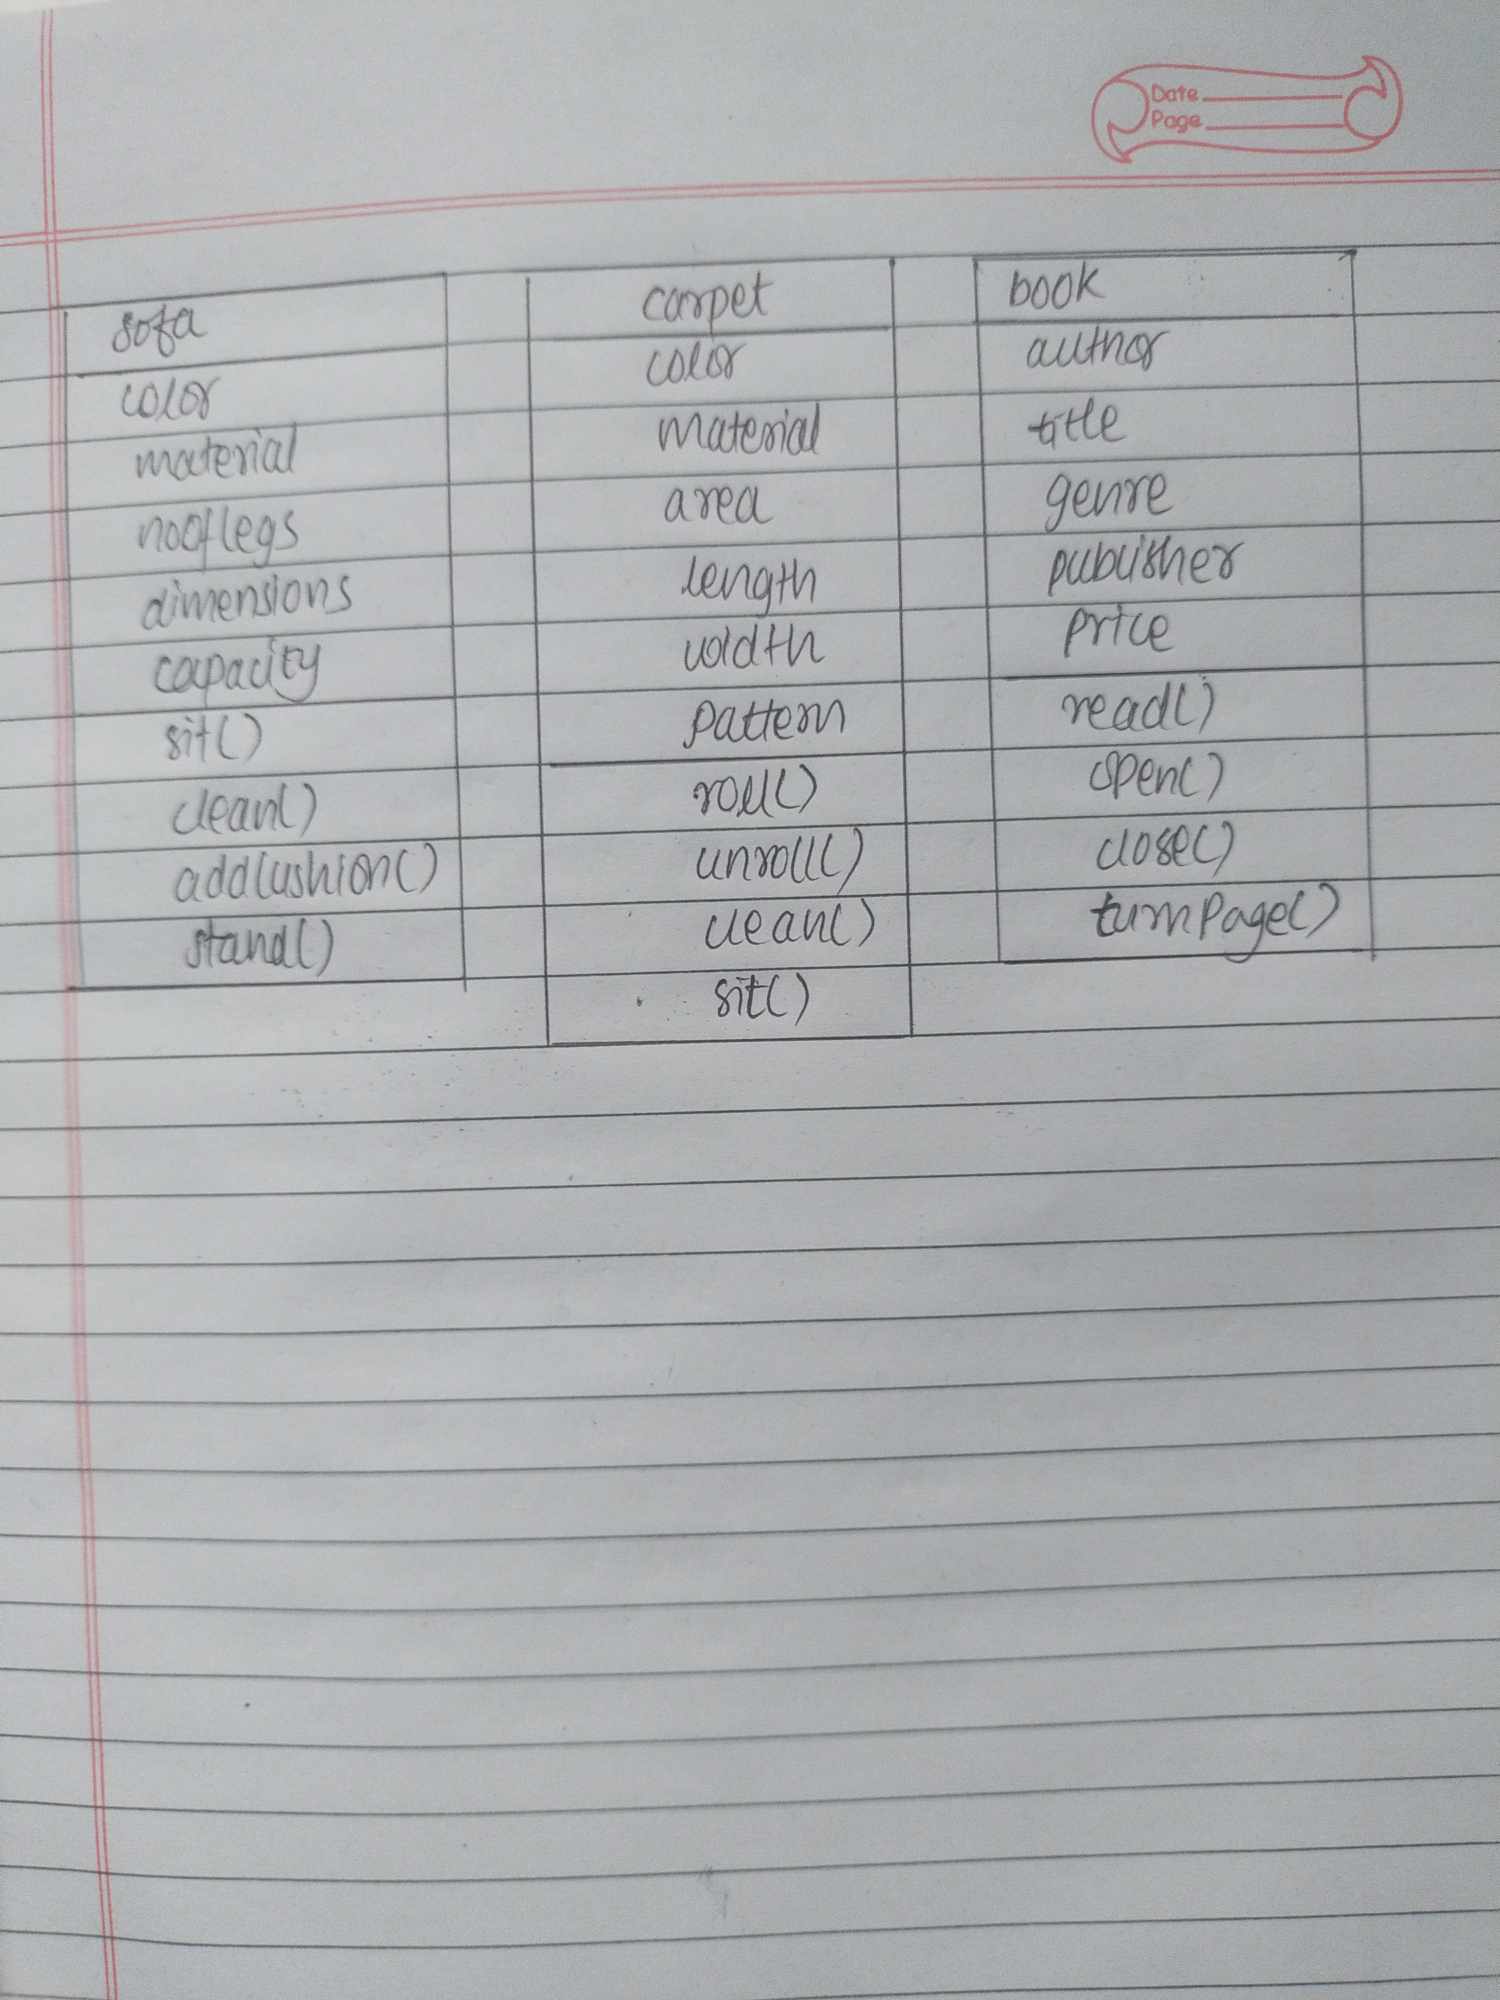 Date
Page
sofa
color
material
noOflegs
dimensions
capacity
sit()
clean()
addCushion()
stand()
carpet
color
material
area
length
width
pattern
roll()
unroll()
clean()
sit()
book
author
title
genre
publisher
price
read()
open()
close()
turnPage()